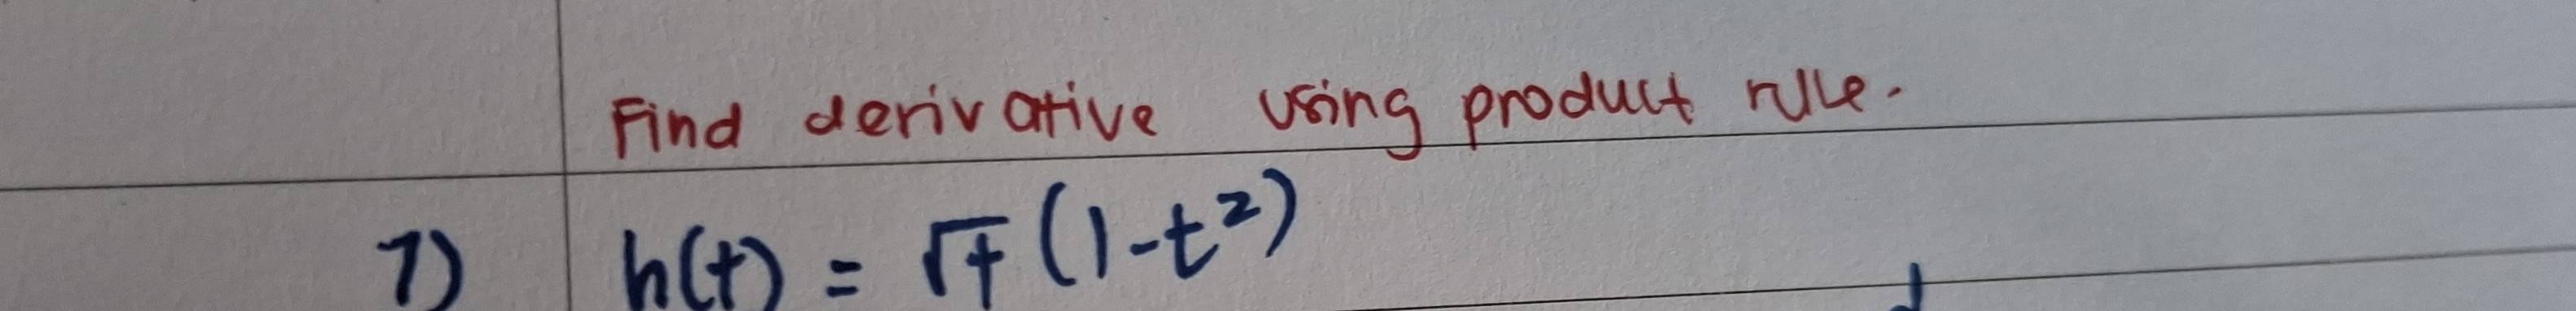 Find derivative using product rule.
7) h(t) = √t (1-t²)